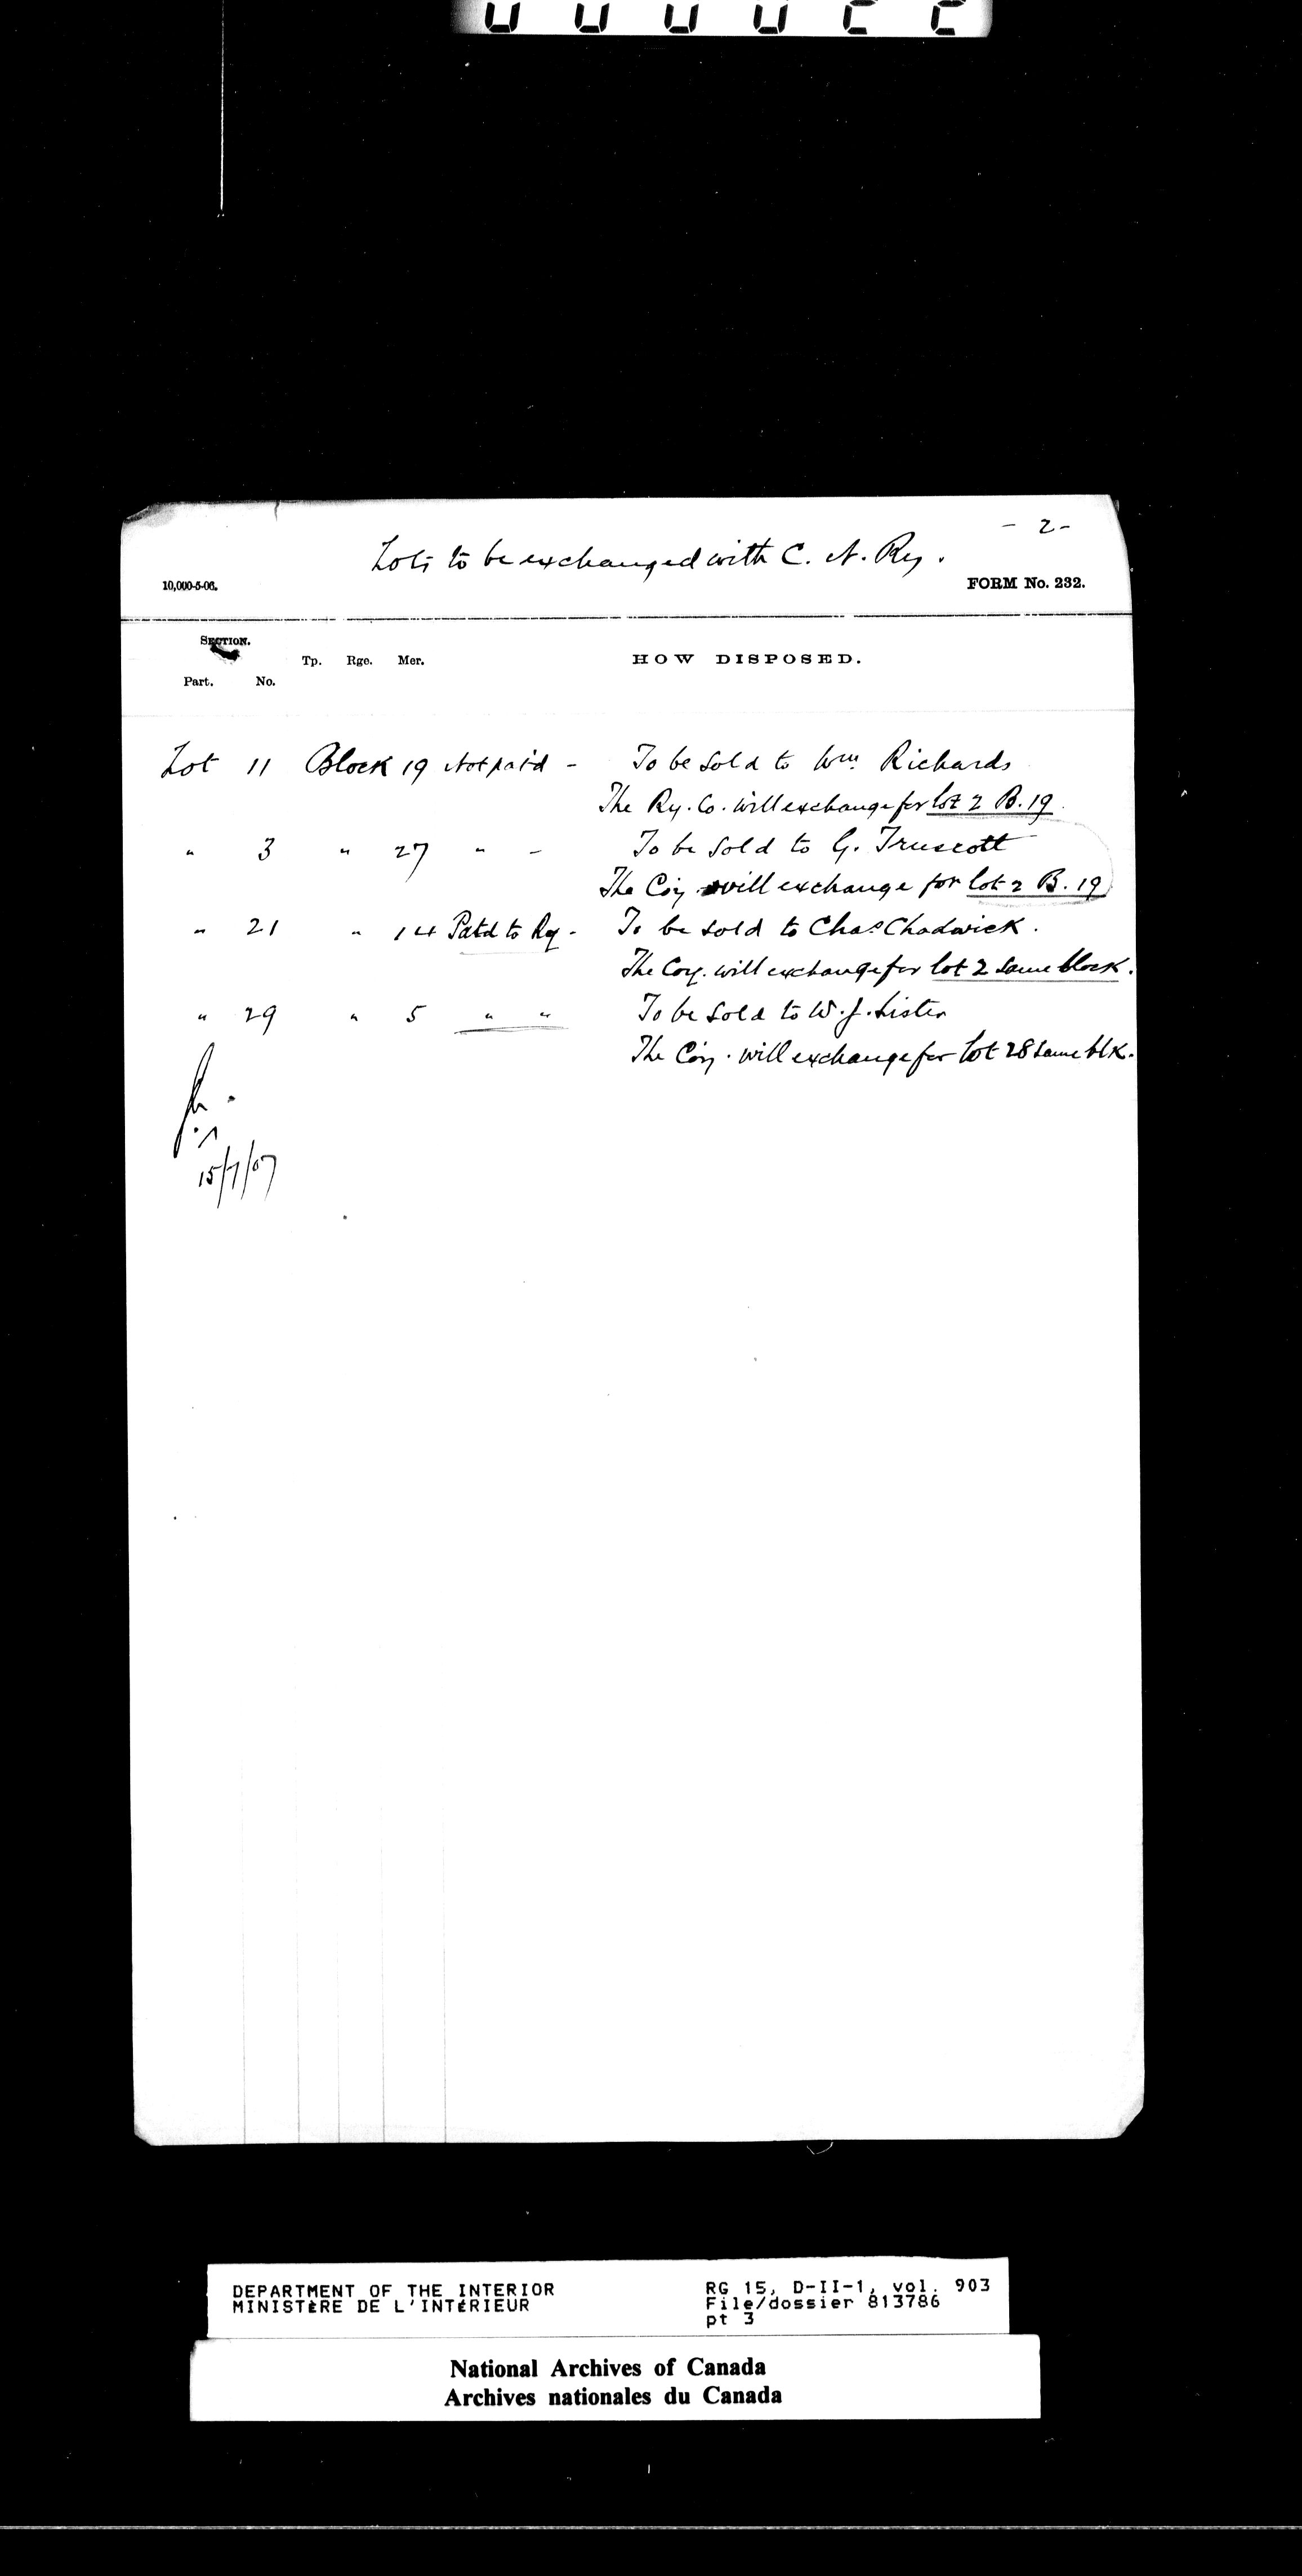 - 2 -
Lots to be exchanged with C. N. Ry.
10,000-5-06.
FORM No. 232.
SECTION.
Tp. Rge. Mer.
HOW DISPOSED.
Part. No.
Lot 11 Block 19 Not pat'd - To be sold to Wm. Richards
The Ry. Co. will exchange for lot 2 B. 19.
" 3 " 27 " - To be sold to G. Truscott
The Coy. will exchange for lot 2 B. 19
" 21 " 14 Patd to Ry - To be sold to Chas Chadwick.
The Coy. will exchange for lot 2 same block.
" 29 " 5 " " To be sold to W. J. Lister
The Coy. will exchange for lot 28 same blk.
15/7/07
DEPARTMENT OF THE INTERIOR
MINISTÈRE DE L'INTÉRIEUR
RG 15, D-II-1, vol. 903
File/dossier 813786
pt 3
National Archives of Canada
Archives nationales du Canada